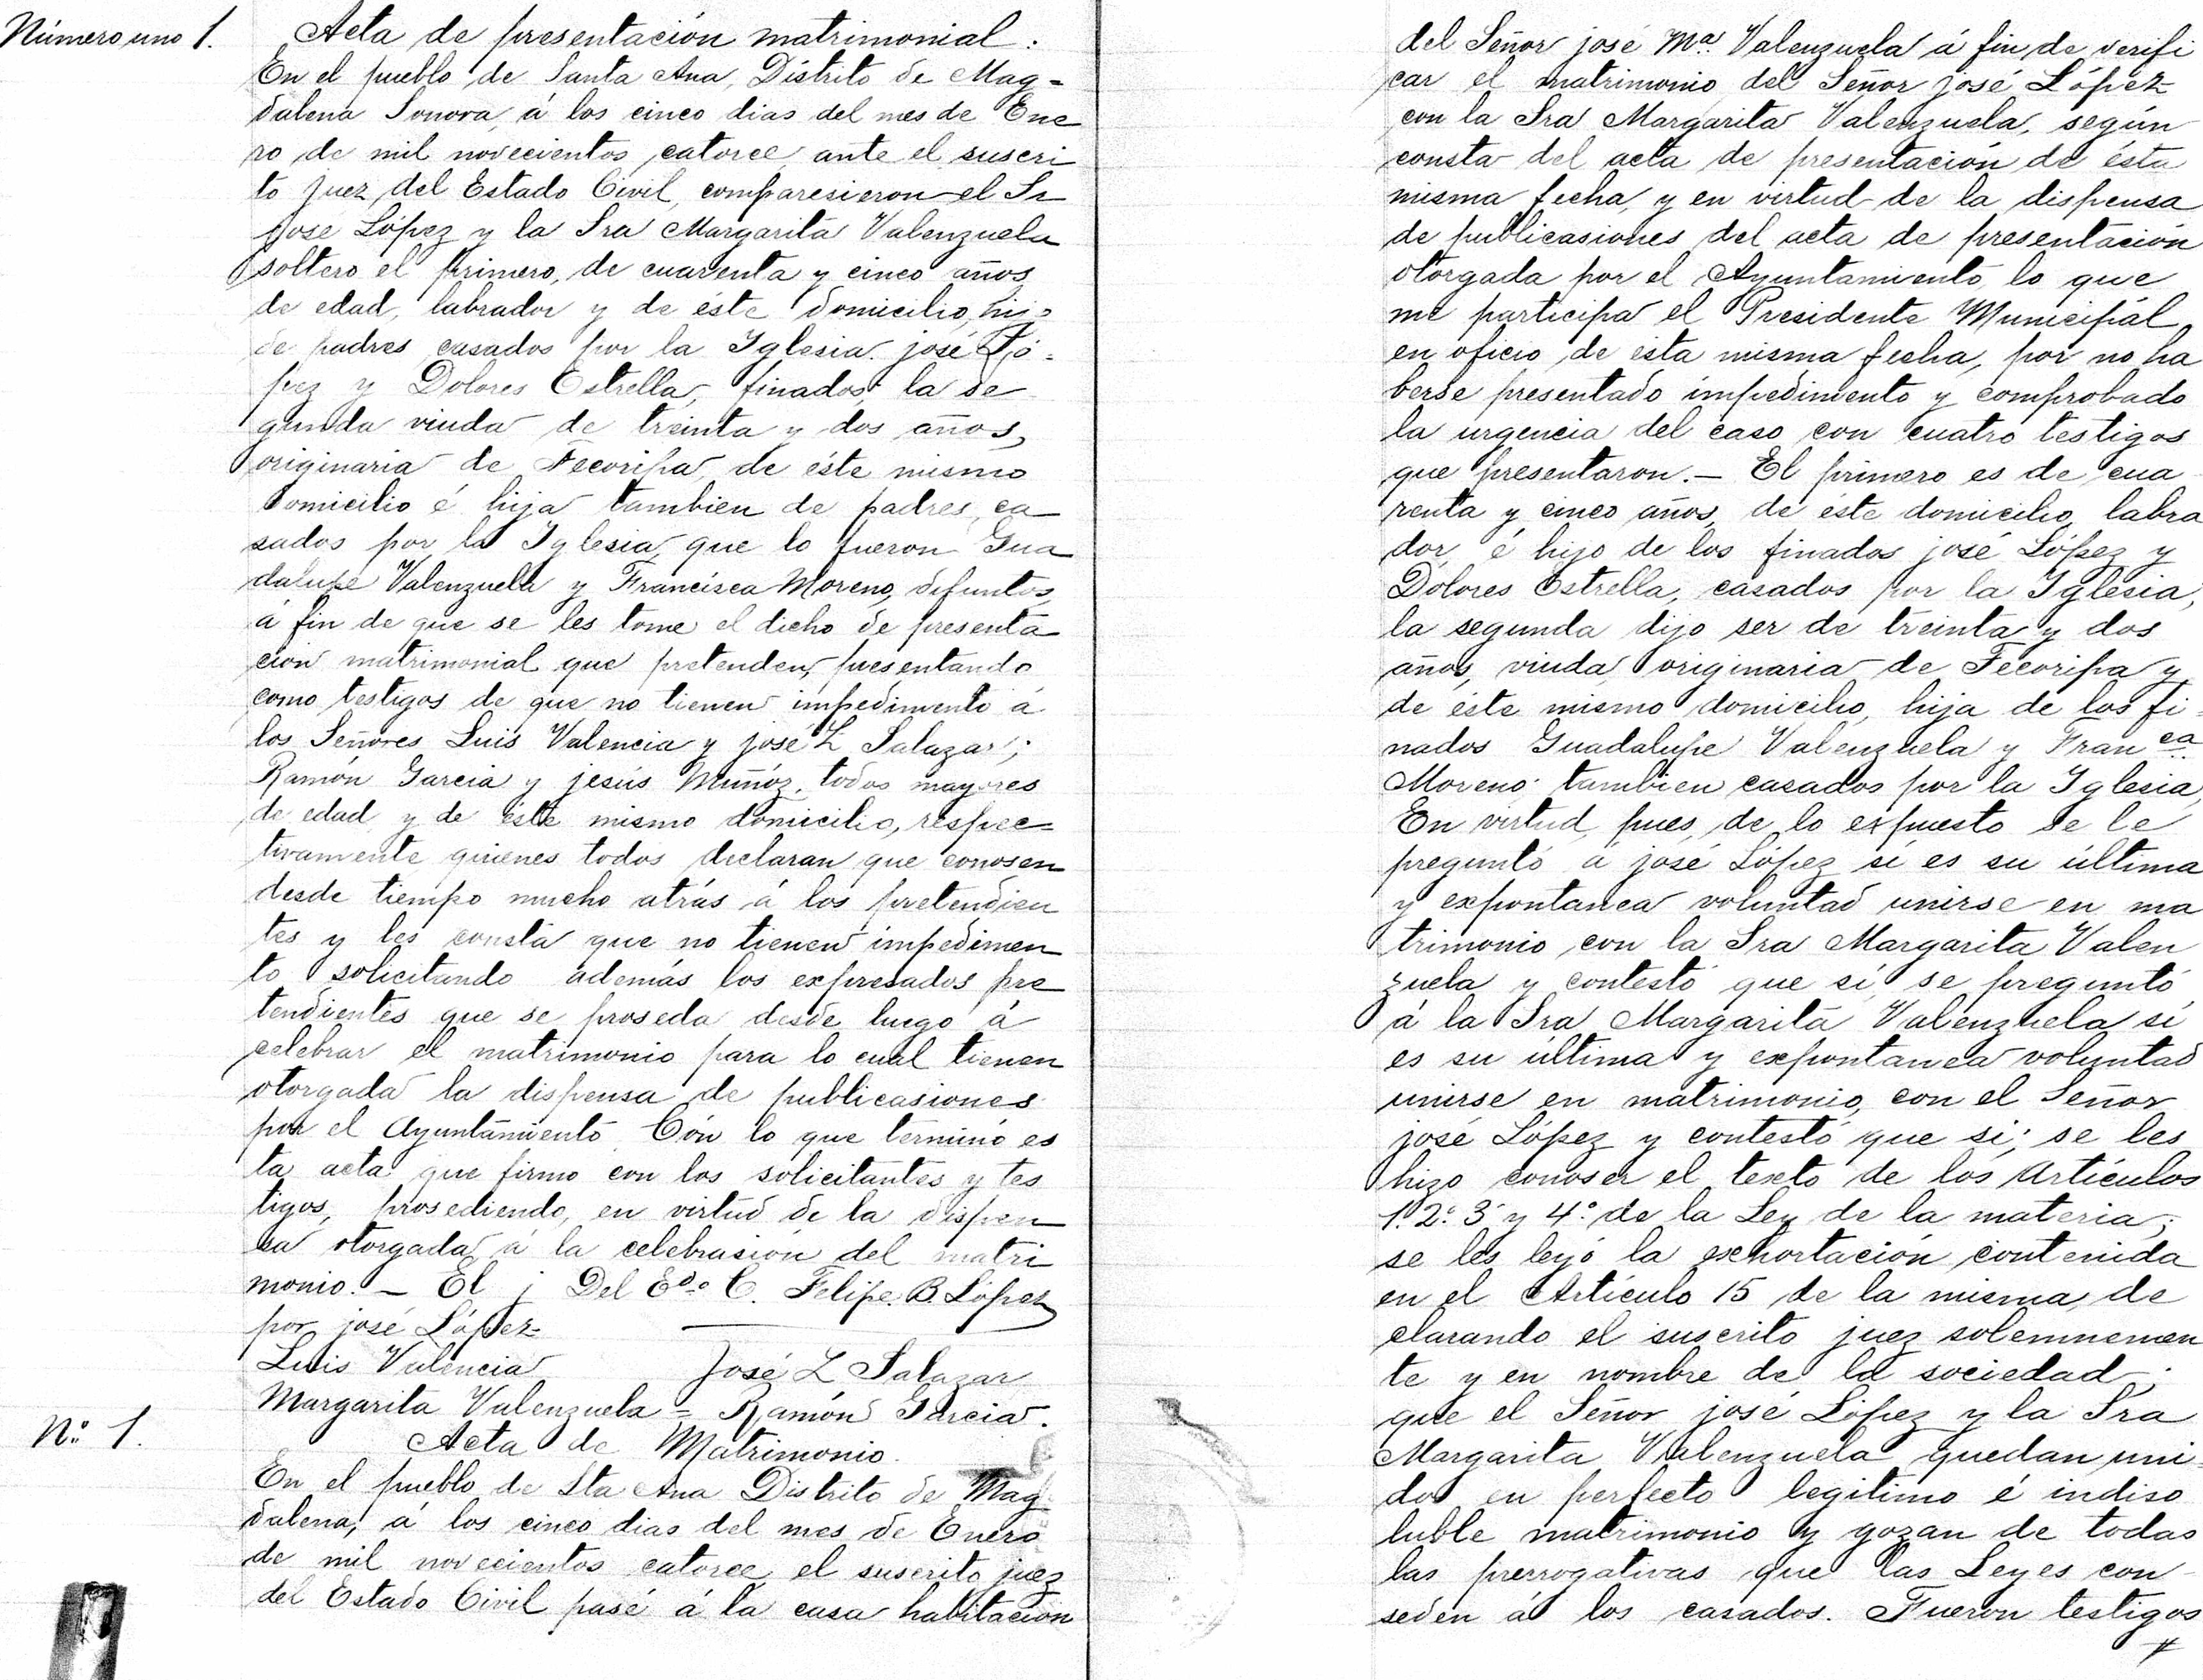 Número uno 1.
Acta de presentación matrimonial.
En el pueblo de Santa Ana, Distrito de Mag-
dalena Sonora, á los cinco dias del mes de Ene
ro de mil novecientos catorce ante el suscri
to juez del Estado Civil, comparesieron el Sr
José López y la Sra Margarita Valenzuela
soltero el primero, de cuarenta y cinco años
de edad, labrador y de éste domicilio, hijo
de padres casados por la Iglesia. josé Ló-
pez y Dolores Estrella, finados, la se
gunda viuda de treinta y dos años,
originaria de Tecoripa, de éste mismo
domicilio é hija tambien de padres ca
sados por la Iglesia, que lo fueron Gua
dalupe Valenzuela y Francisca Moreno, difuntos,
á fin de que se les tome el dicho de presenta
cion matrimonial que pretenden, presentando
como testigos de que no tienen impedimento á
los Señores Luis Valencia y josé L Salazar;
Ramón Garcia y jesús Muñóz, todos mayores
de edad y de éste mismo domicilio, respec=
tivamente quienes todos declaran que conosen
desde tiempo mucho atrás á los pretendien
tes y les consta que no tienen impedimen
to solicitando además los expresados pre
tendientes que se proseda desde luego á
celebrar el matrimonio para lo cual tienen
otorgada la dispensa de publicasiones
por el Ayuntamiento. Con lo que terminó es
ta acta que firmo con los solicitantes y tes
tigos, prosediendo, en virtud de la dispen
sa otorgada á la celebrasión del matri
monio. — El j Del Edo C. Felipe B. López
por josé López
Luis Valencia José L Salazar
Margarita Valenzuela = Ramón Garcia.
No. 1.
Acta de Matrimonio.
En el pueblo de Sta Ana Distrito de Mag
dalena, á los cinco dias del mes de Enero
de mil novecientos catorce, el suscrito juez
del Estado Civil pasé á la casa habitacion
del Señor josé Ma. Valenzuela á fin de verifi
car el matrimonio del Señor josé López
con la Sra Margarita Valenzuela, según
consta del acta de presentación de ésta
misma fecha, y en virtud de la dispensa
de publicasiones del acta de presentación
otorgada por el Ayuntamiento, lo que
me participa el Presidente Municipál
en oficio de ésta misma fecha, por no ha
berse presentado impedimento y comprobado
la urgencia del caso con cuatro testigos
que presentaron. — El primero es de cua
renta y cinco años, de éste domicilio, labra
dor, é hijo de los finados josé López y
Dolores Estrella, casados por la Iglesia;
la segunda dijo ser de treinta y dos
años, viuda, originaria de Tecoripa y
de éste mismo domicilio, hija de los fi-
nados Guadalupe Valenzuela y Franca.
Moreno tambien casados por la Iglesia,
En virtud, pues, de lo expuesto se le
preguntó á josé López si es su última
y expontanea voluntad unirse en ma
trimonio con la Sra Margarita Valen
zuela y contestó que si, se preguntó
á la Sra Margarita Valenzuela si
es su última y expontanea voluntad
unirse en matrimonio, con el Señor
josé López y contestó que si; se les
hizo conoser el texto de los Artículos
1º. 2º. 3º y 4º. de la Ley de la materia;
se les leyó la exhortación contenida
en el Artículo 15 de la misma, de
clarando el suscrito juez solemnemen
te y en nombre de la sociedad;
que el Señor josé López y la Sra
Margarita Valenzuela quedan uni-
dos en perfecto legitimo é indiso
luble matrimonio y gozan de todas
las prerrogativas que las Leyes con
seden á los casados. Fueron testigos